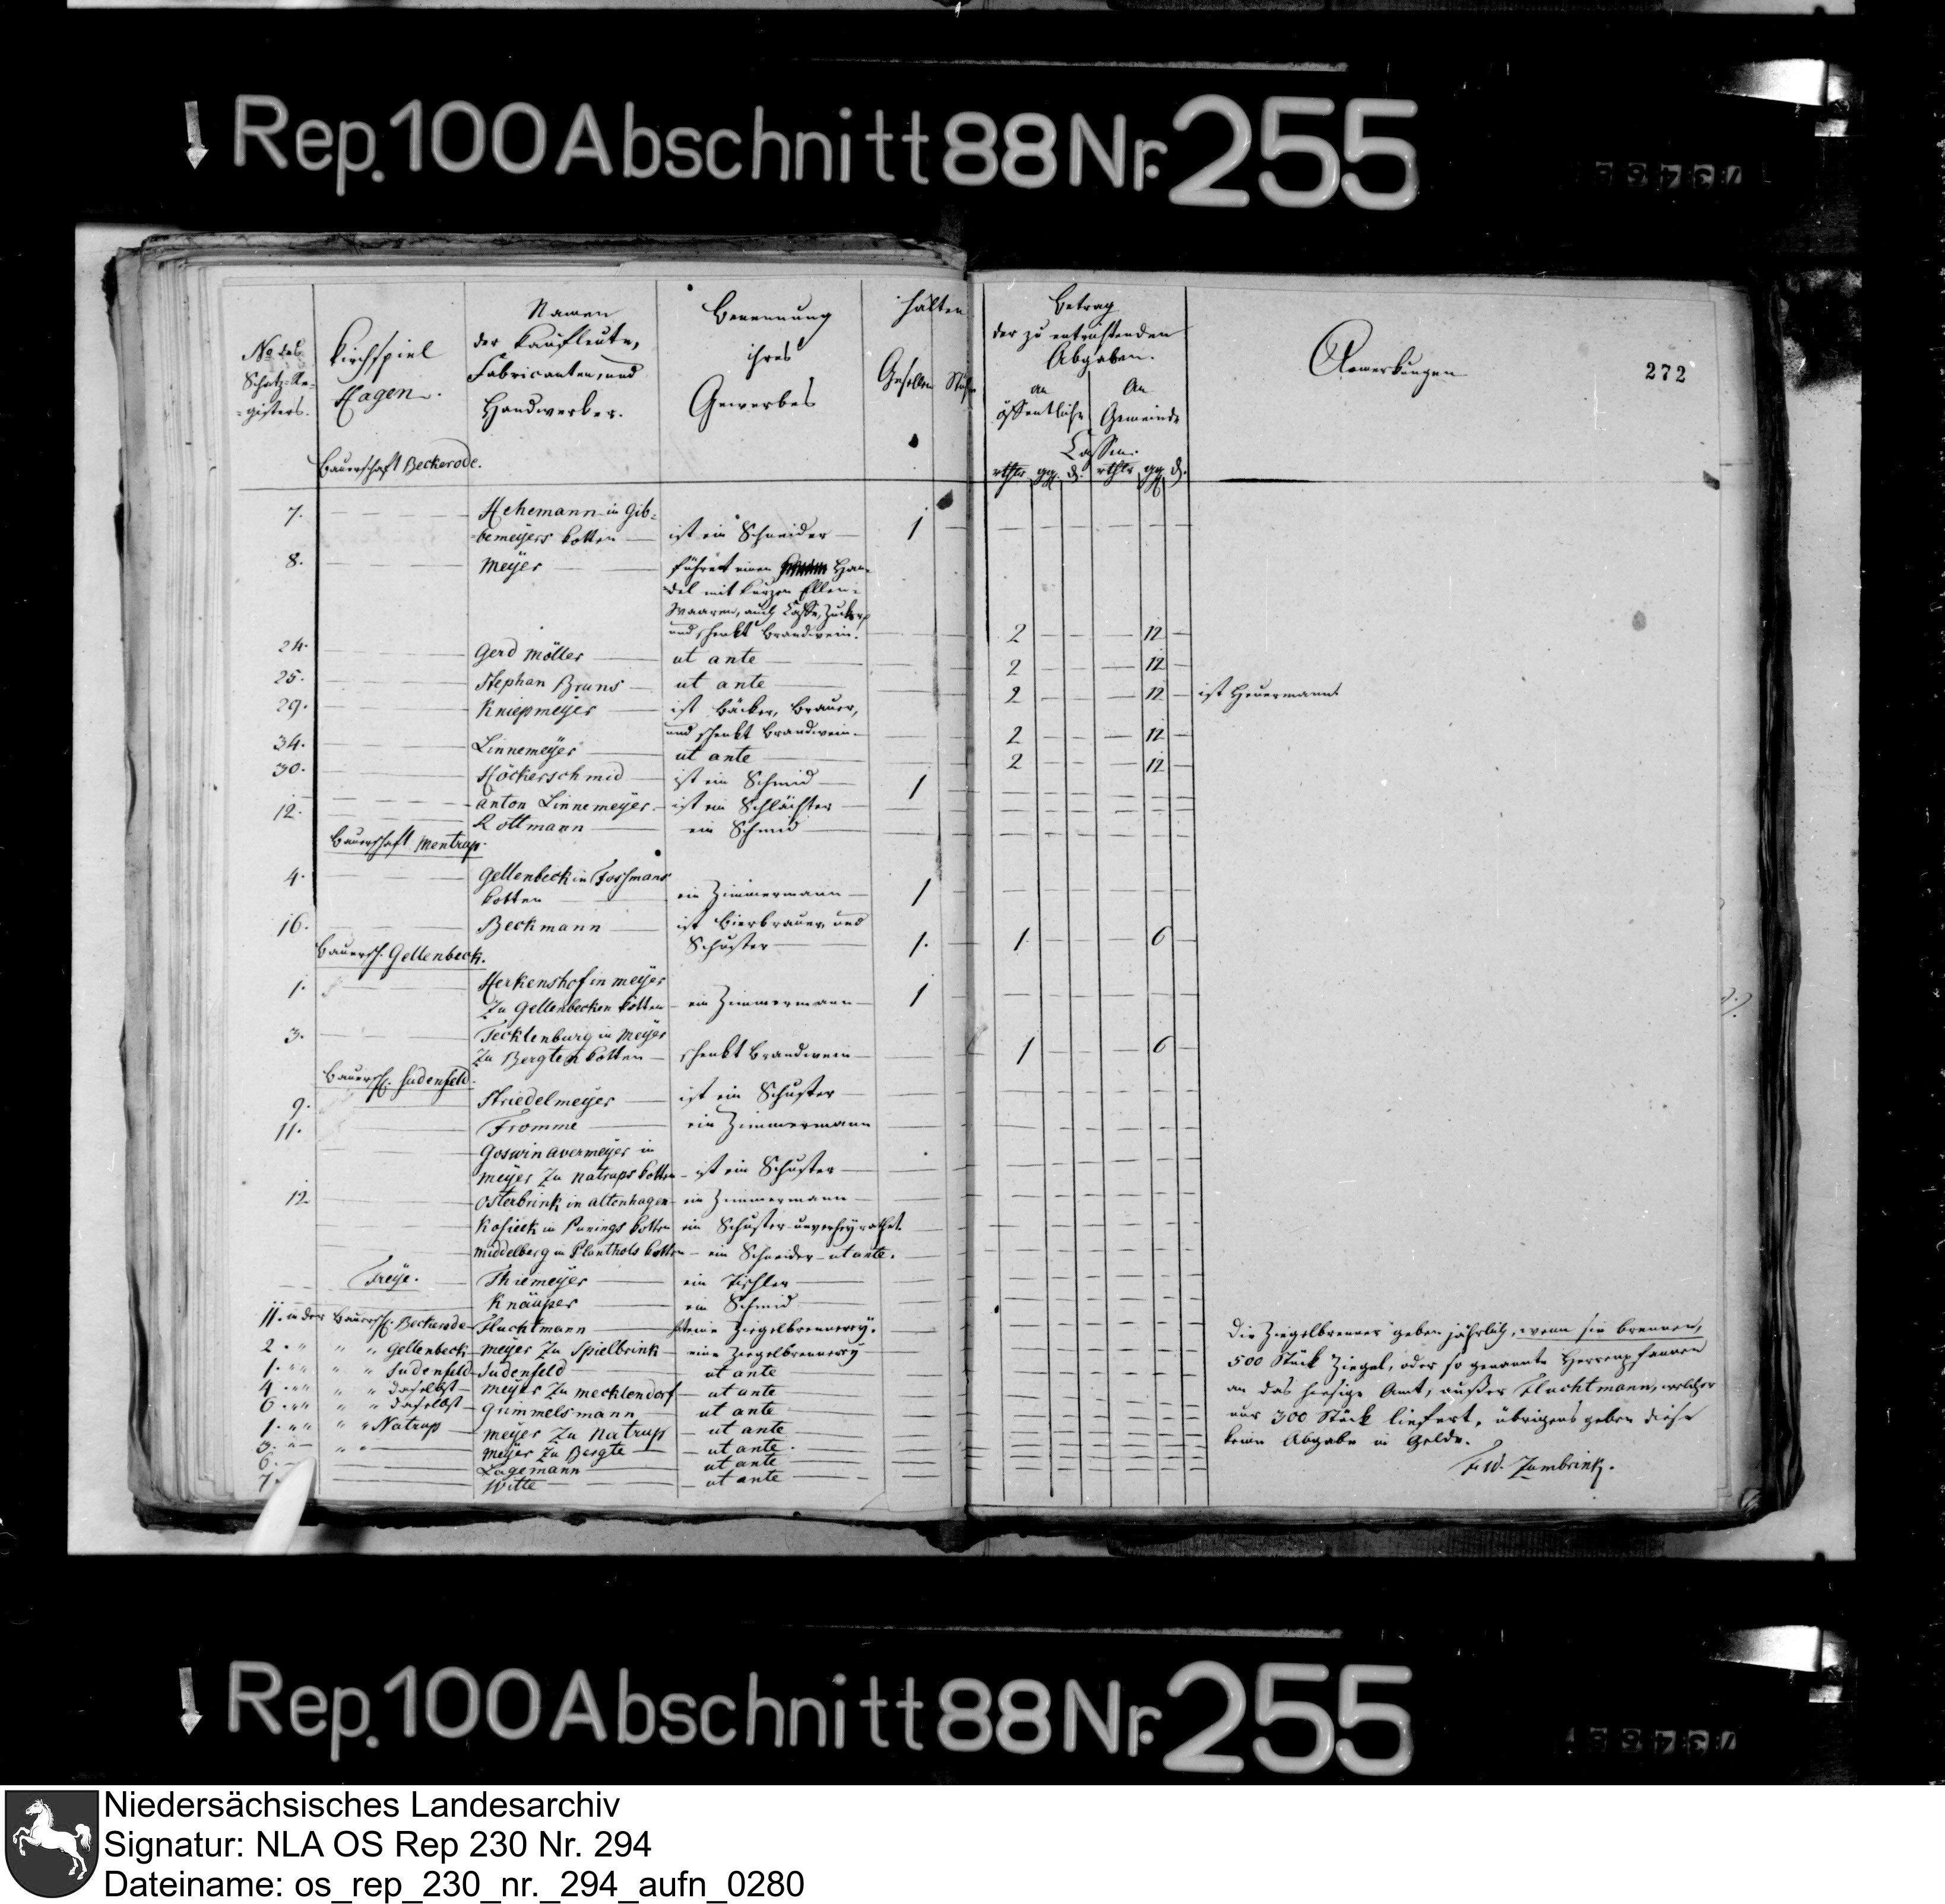 Rep. 100 Abschnitt 88 Nr. 255
No des Schatz-Re-
-gisters.
Kirchspiel
Hagen.
Namen
der Kaufleute,
Fabricanten, und
Handwerker.
Benennung
ihres
Gewerbes
halten
Gesellen
Betrag
der zu entrichtenden
Abgaben.
an
öffentliche
An
Gemeinde
Cassen.
rthlr ggl d. rthlr ggl d.
Anmerkungen
272
Bauerschaft Beckerode.
7. Hehemann in Gib-
-bemeyers Kotten ist ein Schneider 1
8. Meyer führet einen Han-
del mit kurzen Ellen-
Waaren, auch Caffe, Zucker,
und schenkt Brandwein. 2 12
24. Gerd Möller ut ante 2 12
25. Stephan Bruns ut ante 2 12 ist Heuermann
29. Kniepmeyer ist Bäcker, Brauer,
und schenkt Brandwein. 2 12
34. Linnemeyer ut ante 2 12
30. Höckerschmid ist ein Schmid 1
Anton Linnemeyer ist ein Schlächter
12. Rottmann ein Schmid
Bauerschaft Mentrup.
4. Gellenbeck in
Kotten ein Zimmermann 1
16. Beckmann ist Bierbrauer und
Schuster 1. 1 6
Bauersch. Gellenbeck.
1. Herkenhof in Meyer
Zu Gellenbecken Kotten ein Zimmermann 1
3. Tecklenburg in Meyer
Zu Bergten Kotten schenkt Brandwein 1 6
Bauersch. Sudenfeld.
9. Striedelmeyer ist ein Schuster
11. Fromme ein Zimmermann
Goswin Avermeyer in
Meyer Zu Natrups Kotten ist ein Schuster
12 Osterbrink in Altenhagen ein Zimmermann
Kasieck in Kotten ein Schuster unverheyrathet
Middelberg in Plantholt Kotten ein Schneider ut ante.
Freye. Thiemeyer ein Tischler
Knäuper ein Schmid
11. in der Bauersch. Beckerode Fluchtmann hat eine Ziegelbrennerey.
2. " " " Gellenbeck Meyer Zu Spielbrink eine Ziegelbrennerey
1. " " " " Sudenfeld Sudenfeld ut ante
4. " " " " daselbst Meyer Zu Mecklendorf ut ante
6. " " " " daselbst Grimmelsmann ut ante
1. " " " " Natrup Meyer Zu Natrup ut ante
3. " " " Meyer Zu Bergte ut ante.
6. Lagemann ut ante
7. Witte ut ante
Die Ziegelbrenner geben jährlich, wenn sie brennen,
500 Stück Ziegel, oder so genannte Herrenpfannen
an das hiesige Amt, außer Fluchtmann, welcher
nur 300 Stück liefert, übrigens geben diese
keine Abgabe in Gelde.
Zumbrink.
Rep. 100 Abschnitt 88 Nr. 255
Niedersächsisches Landesarchiv
Signatur: NLA OS Rep 230 Nr. 294
Dateiname: os_rep_230_nr._294_aufn_0280